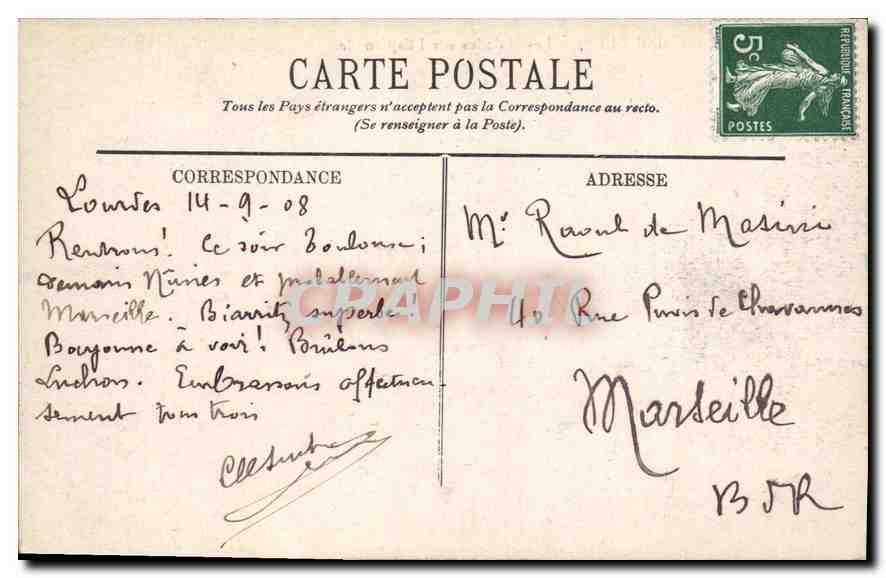 CARTE POSTALE
Tous les Pays étrangers n'acceptent pas la Correspondance au recto.
(Se renseigner à la Poste).
5c
REPUBLIQUE FRANÇAISE
POSTES
CORRESPONDANCE
Lourdes 14-9-08
Rentrons! Ce soir Toulouse;
demain Nimes et probablement
Marseille. Biarritz superbe!
Bayonne à voir! Brûlons
Luchon. Embrassons affectueu-
sement tous trois
ADRESSE
Mr Raoul de Masini
40 Rue Puvis de Chavannes
Marseille
B d R
CPAPHIL